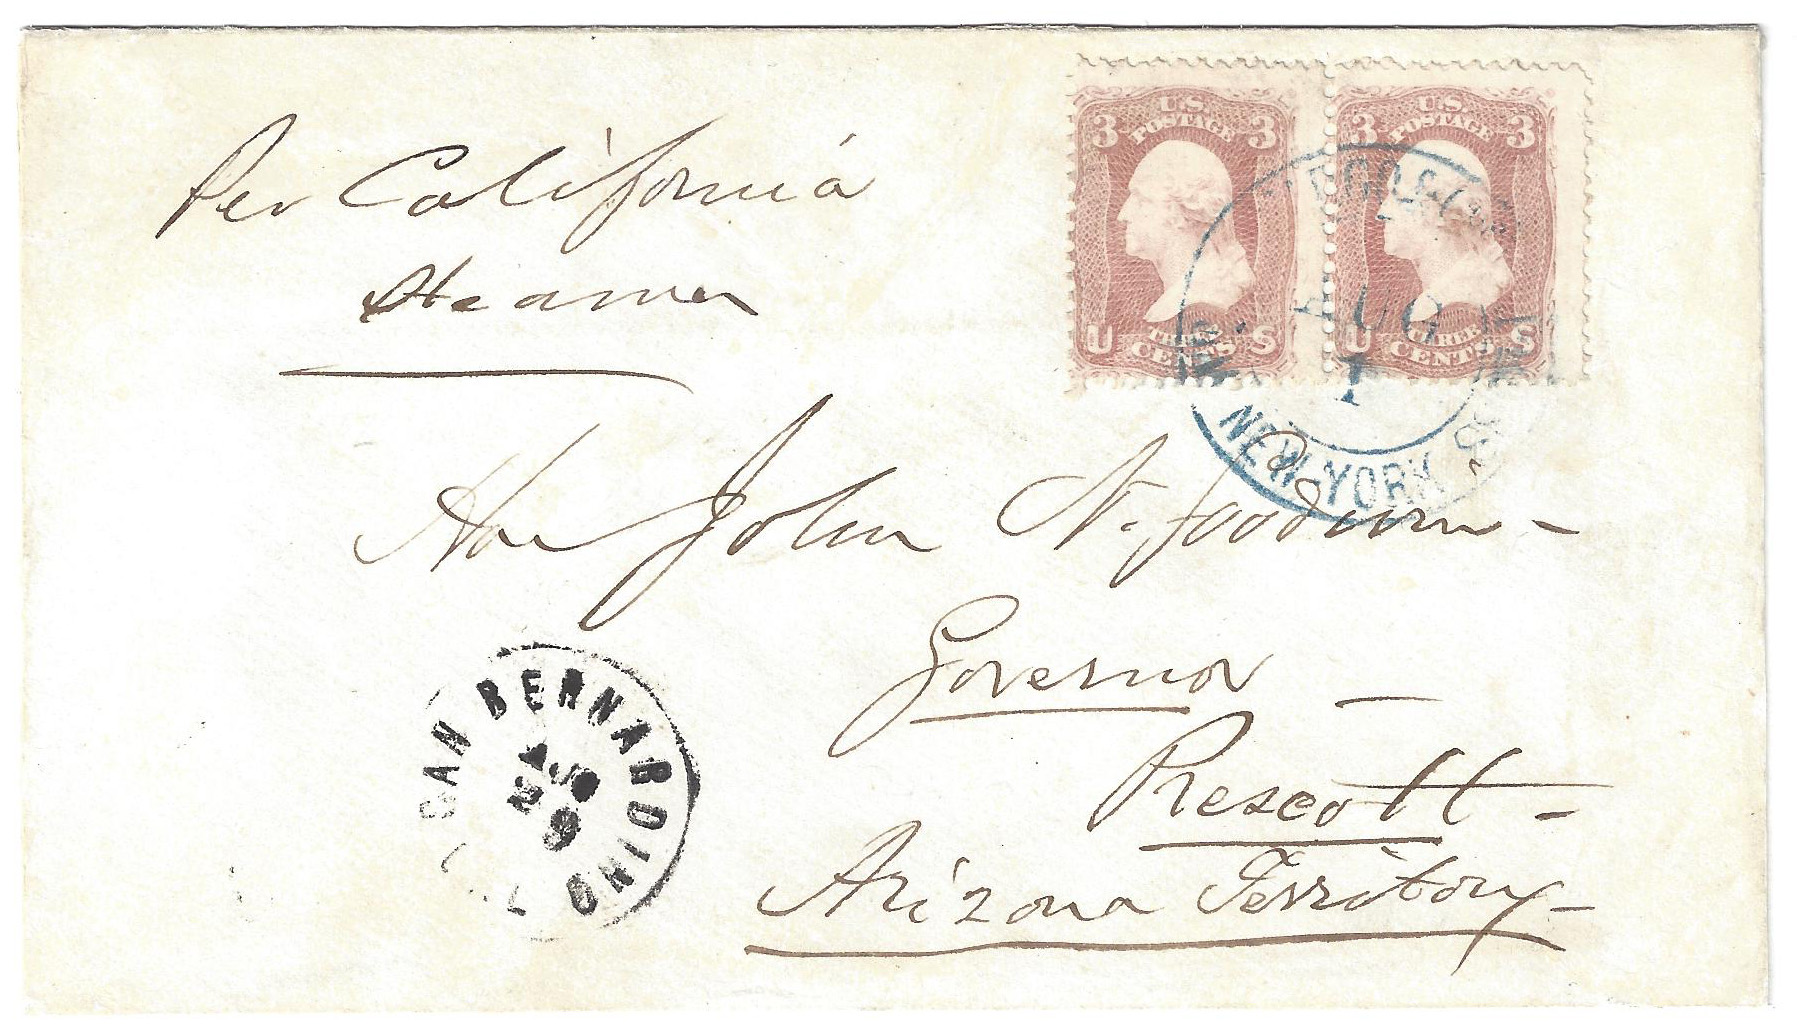 Per California
Steamer
U.S.
POSTAGE
3 3
U THREE CENTS S
U.S.
POSTAGE
3 3
U THREE CENTS S
AUG
1
NEW-YORK
Hon John N. Goodwin -
Governor -
Prescott -
Arizona Territory -
SAN BERNARDINO
AUG